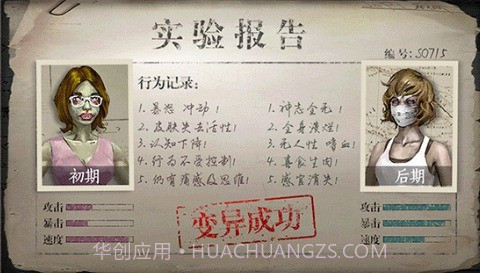 实验报告
编号:S0715
行为记录:
1.暴怒 冲动!
2.皮肤失去活性!
3.认知下降!
4.行为不受控制!
5.仍有痛感及思维!
1.神志全无!
2.全身溃烂!
3.无人性 嗜血!
4.喜食生肉!
5.感官消失!
初期
后期
攻击
暴击
速度
攻击
暴击
速度
变异成功
华创应用·HUACHUANGZS.COM